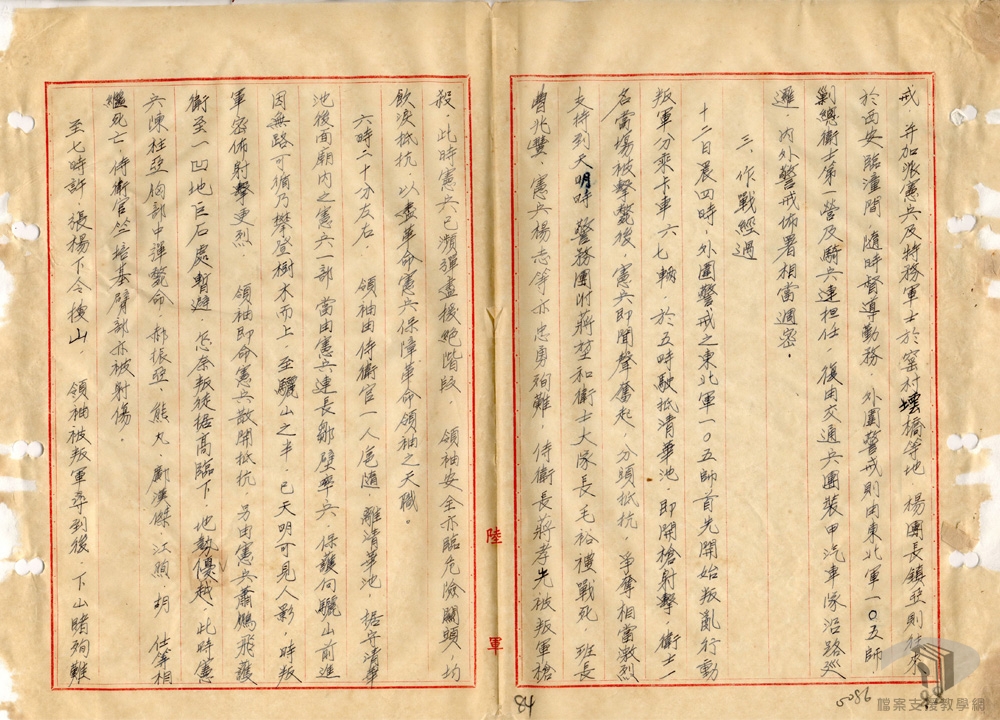 戒　并加派憲兵及特務軍士於窰村壩橋等地　楊團長鎮亞則往來
於西安臨潼間，隨時督導勤務，外圍警戒則由東北軍一〇五師，
剿總衛士第一營及騎兵連担任，復由交通兵團裝甲汽車隊沿路巡
邏，內外警戒佈署相當週密。
三、作戰經過
十二日晨四時，外圍警戒之東北軍一〇五師首先開始叛亂行動
叛軍分乘卡車六七輛，於五時駛抵清華池，即開槍射擊，衛士一
名當場被擊斃後，憲兵即聞聲奮起，分頭抵抗，爭奪相當激烈
支持到天明時　警務團附蔣堃和衛士大隊長毛裕禮戰死，班長
曹兆豐，憲兵楊志等亦忠勇殉難，侍衛長蔣孝先被叛軍槍
殺，此時憲兵已瀕彈盡後絕階段，　領袖安全亦臨危險關頭，均
飲淚抵抗，以盡革命憲兵保障革命領袖之天職。
六時二十分左右，　領袖由侍衛官一人尾隨，離清華池，據守清華
池後面廟內之憲兵一部　當由憲兵連長鄒璧率兵、保護向驪山前進
因無路可循乃攀登樹木而上，至驪山之半，已天明可見人影，時叛
軍密佈射擊更烈　領袖即命憲兵散開抵抗，另由憲兵蕭鵬飛護
衛至一凹地巨石處暫避　怎奈叛徒据高臨下，地勢優越，此時憲
兵陳柱亞胸部中彈斃命，郝振亞、熊丸、鄺漢傑、江願　胡　仕等相
繼死亡，侍衛官竺培基臂部亦被射傷。
至七時許，張楊下令搜山，　領袖被叛軍尋到後，下山睹殉難
陸
軍
84
5086
檔案支援教學網